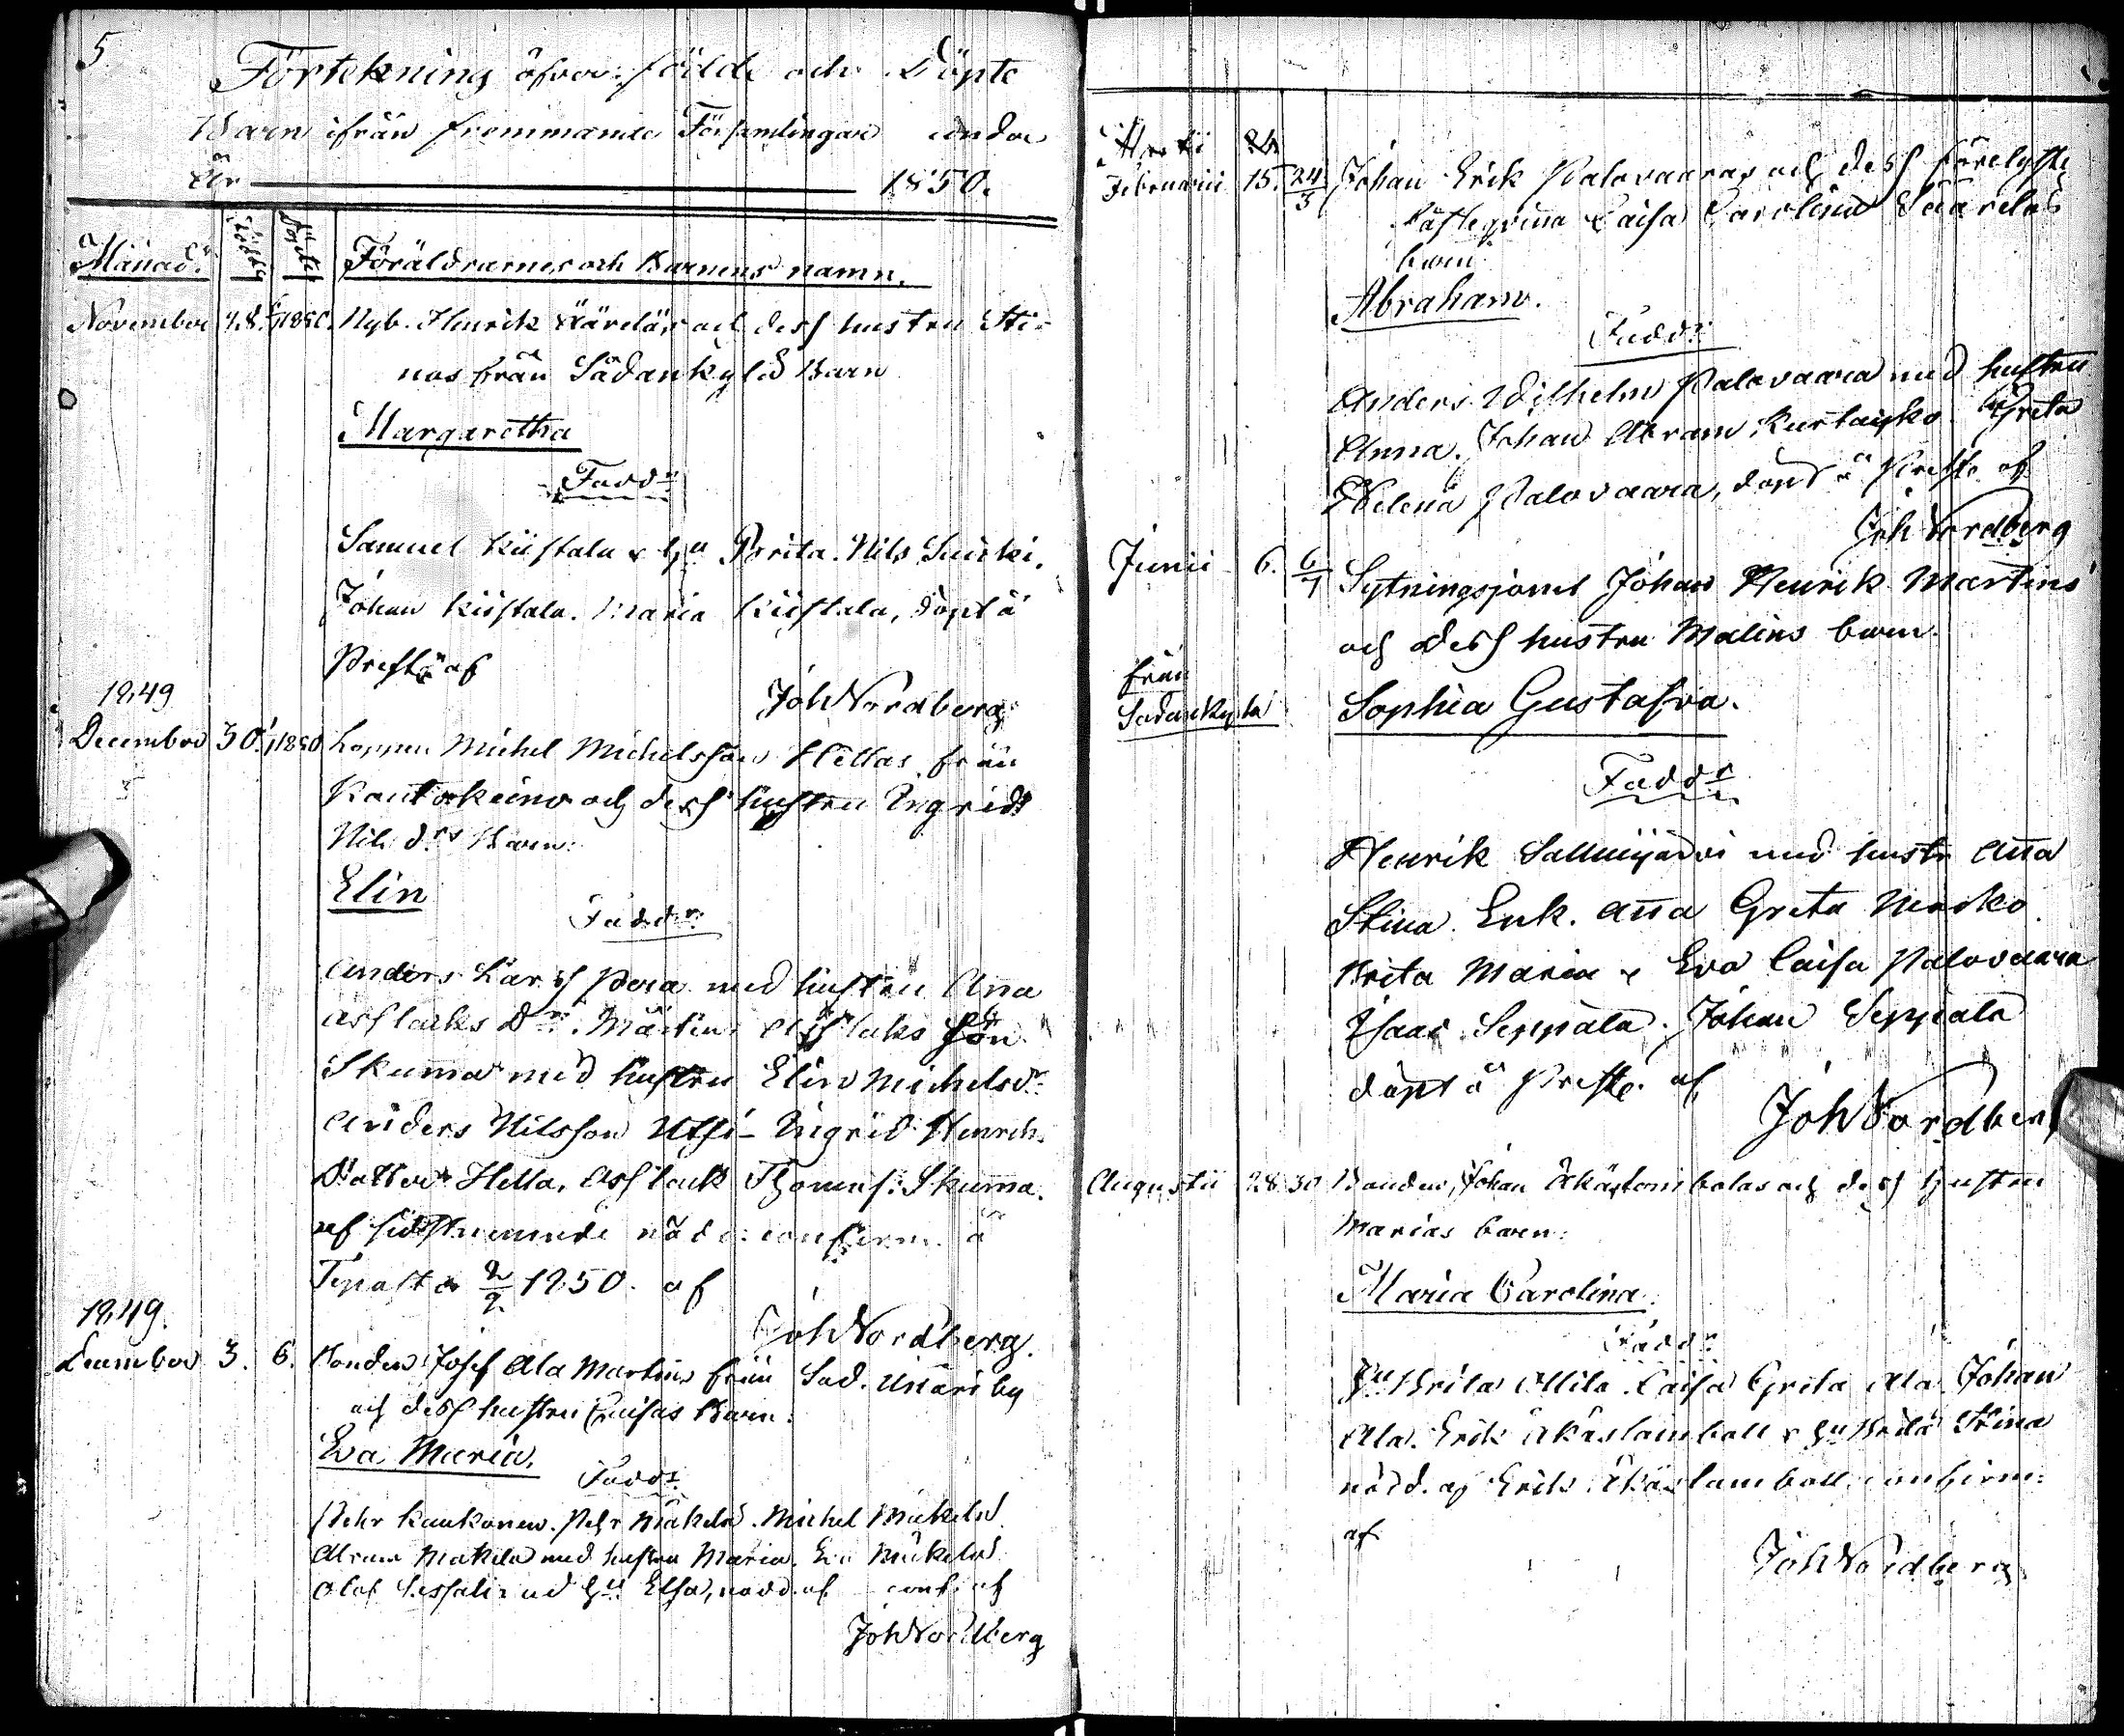 5
Förtekning öfver födde och Döpte
Barn ifrån fremmande Församlingar under
År 1850.
Månad. födde Döpte Föräldrarnes och Barnens namn.
November 28. 1850. Nyb. Henrik och dess hustru Sti-
nas från Sådankylä Barn
Margaretha
Fadd:r
Samuel Kiistala & hu Brita. Nils
Johan Kiistala. Maria Kiistala, döpt å
Prest: af
Joh Nordberg
1849
December 30. 1850 Lappen Michel Michelsson Hettas från
Kautokeino och dess hustru Ingrids
Nils d:rs Barn:
Elin
Fadd:r
Anders Lars s Pera med hustru Anna
Aslaks D:r. Mårtin Aslaks Sön
Skumma med hustru Elin Michelsd:r
Anders Nilsson Utsi - Ingrid Henrik
Datter Hetta. Aslack Thomas: Skumma.
af sidstnemnde nödd: confirm. å
Tepasto 2/2 1850. af
Joh Nordberg.
1849.
December 3. 6. Bonden Josef Ala Martins från Sod. Unari by
och dess hustru Caisas Barn:
Eva Maria.
Fadd:r
Pehr Kaukonen. Pehr Mäkelä. Michel Mäkelä
Abram Mäkelä med hustru Maria. Eva Mäkelä
Olof med hu Elsa, nödd. af conf. af
Joh Nordberg
Februarii 15. 24/3 Johan Erik Palovaaras och dess förelyste
Fästeqvinna Caisa Carolina Säärelas
barn
Abraham.
Fadd:r
Anders Wilhelm Palovaara med hustru
Anna. Johan Abram Kurtakko. Greta
Helena Palovaara, döpt å Prest: af
Joh Nordberg
Junii 6. 6/7 Sytningsjonet Johan Henrik Martins
och dess hustru Malins barn.
från
Sodankylä
Sophia Gustafva.
Fadd:r
Henrik Sallmijärvi med hustr Anna
Stina. Enk. Anna Greta
Brita Maria & Eva Caisa Palovaara
Isaac Seppälä. Johan Seppälä
döpt å Prest: af
Joh Nordberg
Augustii 28. 30 Bonden Johan Äkäslombolas och dess hustru
Marias barn:
Maria Carolina.
Fadd:r
Hu Brita Caisa Greta Ala. Johan
Ala. Erik Äkäslombolo & hu Brita Stina
nödd. af Erik Äkäslombolo confirm:
af
Joh Nordberg